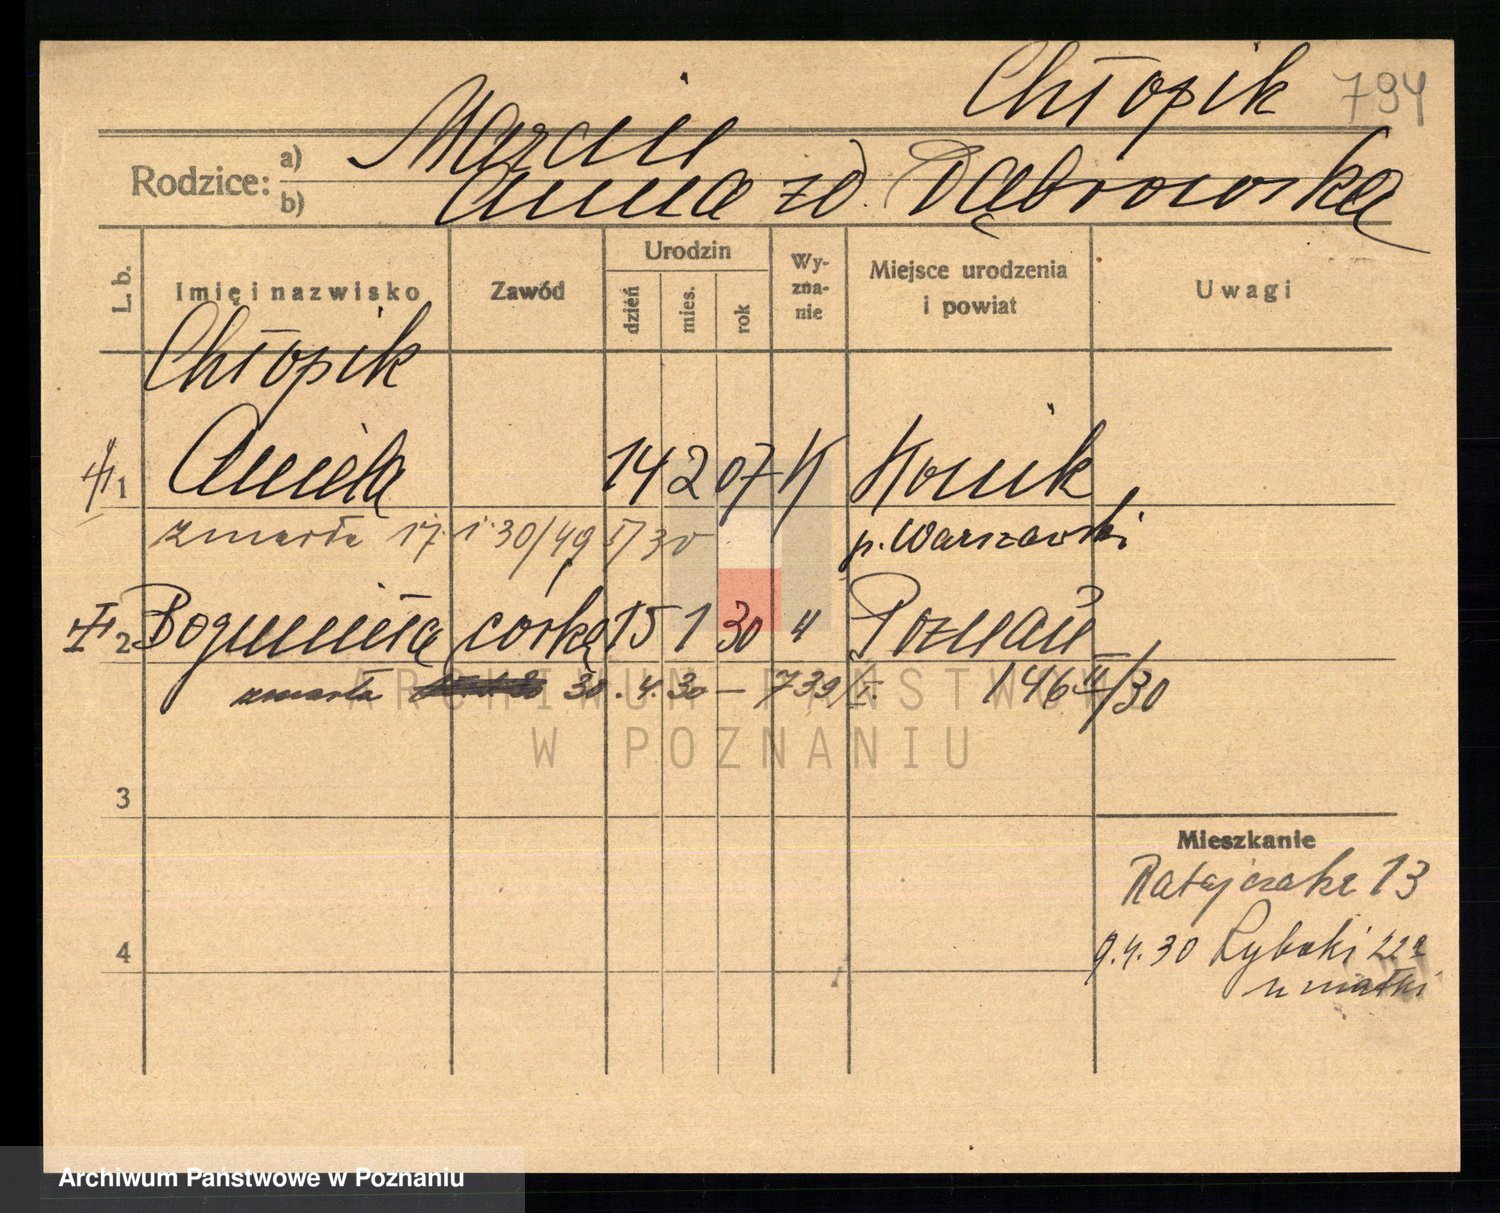 Chłopik 794
Rodzice:
a) Marcin
b) Anna zd. Dąbrowska
L. b.
Imię i nazwisko
Zawód
Urodzin
dzień
mies.
rok
Wy-
zna-
nie
Miejsce urodzenia
i powiat
Uwagi
Chłopik
1 Aniela 14 2 07 K Konik
zmarła 17. 1. 30/49 I/30 p. Warszawski
2 Bogumiła córka 15 1 30 " Poznań
zmarła 30. 4. 30 – 739/I. 146 II/30
3
Mieszkanie
Ratajczaka 13
4
9.4.30 Rybaki 22a
u matki
ARCHIWUM PAŃSTWOWE
W POZNANIU
Archiwum Państwowe w Poznaniu